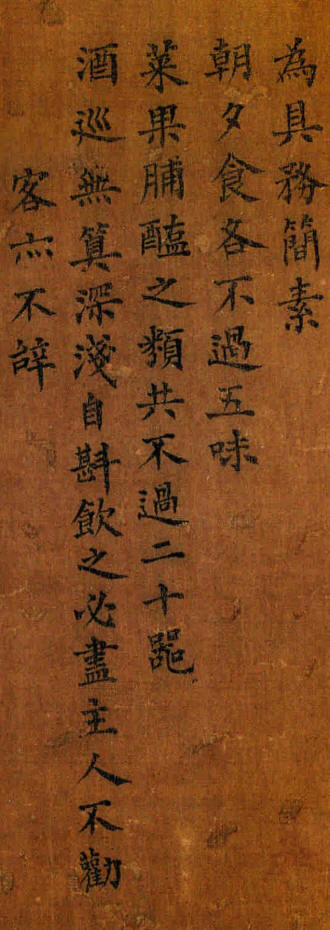 為具務簡素
朝夕食各不過五味
菜果脯醢之類共不過二十器
酒巡無算深淺自斟飲之必盡主人不勸
客亦不辭